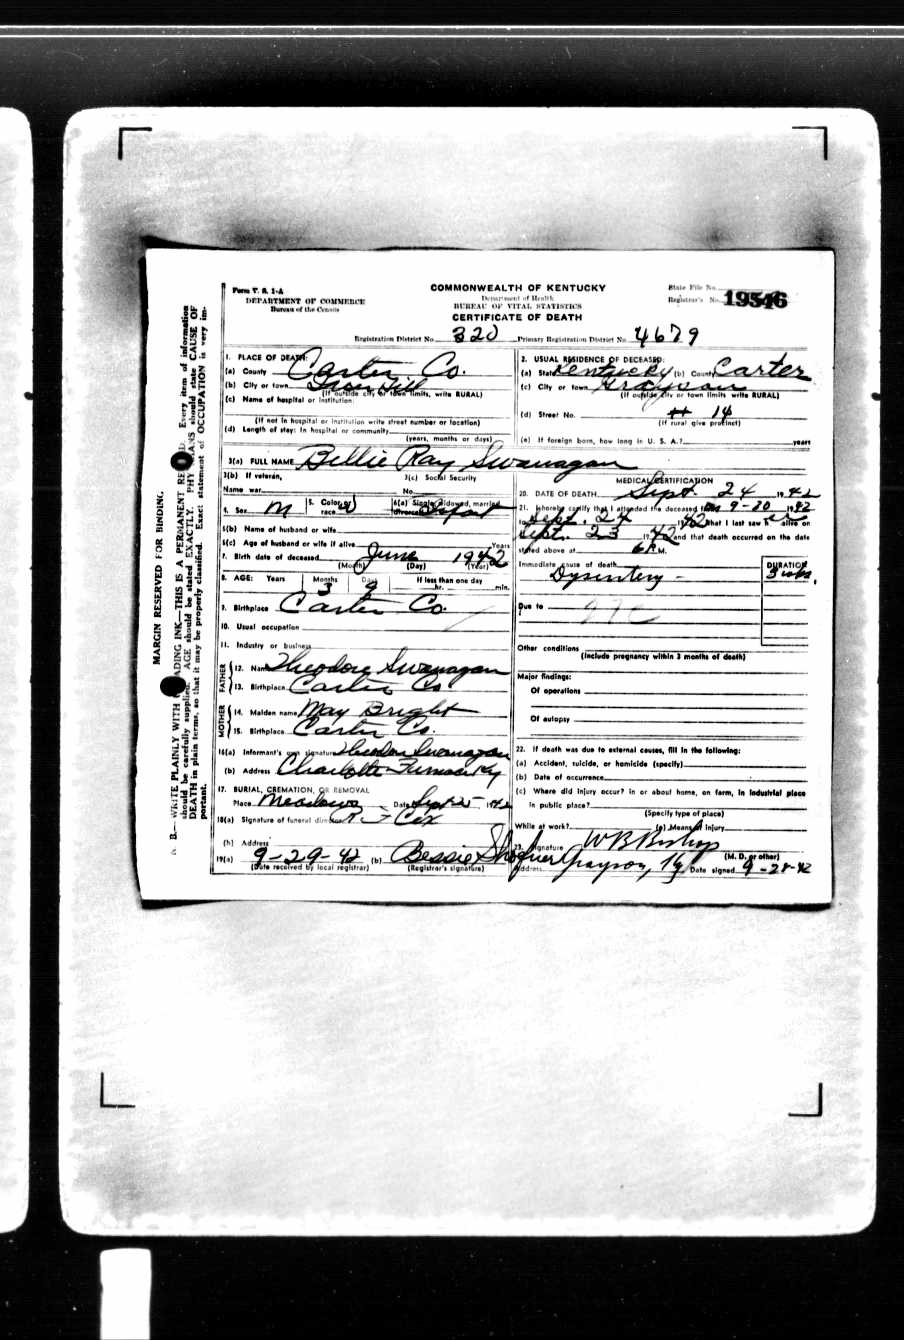 Form V. S. 1-A
DEPARTMENT OF COMMERCE
Bureau of the Census
COMMONWEALTH OF KENTUCKY
Department of Health
BUREAU OF VITAL STATISTICS
CERTIFICATE OF DEATH
State File No.
Registrar's No. 19546
Registration District No. 320 Primary Registration District No. 4679
1. PLACE OF DEATH:
(a) County Carter Co.
(b) City or town Iron Hill
(If outside city or town limits, write RURAL)
(c) Name of hospital or institution:
(If not in hospital or institution write street number or location)
(d) Length of stay: In hospital or community
(years, months or days)
2. USUAL RESIDENCE OF DECEASED:
(a) State Kentucky (b) County Carter
(c) City or town Grayson
(If outside city or town limits write RURAL)
(d) Street No. # 14
(If rural give precinct)
(e) If foreign born, how long in U. S. A.? years
3(a) FULL NAME Billie Ray Swanagan
3(b) If veteran, 3(c) Social Security
Name war No.
4. Sex M 5. Color or race W 6(a) Single, widowed, married, divorced Infant
6(b) Name of husband or wife
6(c) Age of husband or wife if alive Years
7. Birth date of deceased June 1942
(Month) (Day) (Year)
8. AGE: Years Months Days If less than one day
3 9 hr. min.
9. Birthplace Carter Co.
10. Usual occupation
11. Industry or business
FATHER
12. Name Theodore Swanagan
13. Birthplace Carter Co
MOTHER
14. Maiden name May Bright
15. Birthplace Carter Co.
16(a) Informant's own signature Theodore Swanagan
(b) Address Charlotte Furnace Ky
17. BURIAL, CREMATION, OR REMOVAL
Place Meadows Date Sept 25 1942
18(a) Signature of funeral director Cox
(b) Address
19(a) 9-29-42 (b) Bessie Shofner
(Date received by local registrar) (Registrar's signature)
MEDICAL CERTIFICATION
20. DATE OF DEATH Sept. 24 1942
21. I hereby certify that I attended the deceased from 9-20 1942
to Sept. 24 1942 that I last saw h alive on
Sept. 23 1942 and that death occurred on the date
stated above at 6 P.M.
Immediate cause of death DURATION
Dysentery - 3 wks.
Due to
Other conditions
(Include pregnancy within 3 months of death)
Major findings:
Of operations
Of autopsy
22. If death was due to external causes, fill in the following:
(a) Accident, suicide, or homicide (specify)
(b) Date of occurrence
(c) Where did injury occur? in or about home, on farm, in industrial place
in public place?
(Specify type of place)
While at work? (e) Means of injury
23. Signature W B Bishop
(M. D. or other)
Address Grayson, Ky Date signed 9-28-42
MARGIN RESERVED FOR BINDING.
N. B.—WRITE PLAINLY WITH ADING INK—THIS IS A PERMANENT RE D. Every item of information
should be carefully supplied. AGE should be stated EXACTLY. PHY IANS should state CAUSE OF
DEATH in plain terms, so that it may be properly classified. Exact statement of OCCUPATION is very im-
portant.